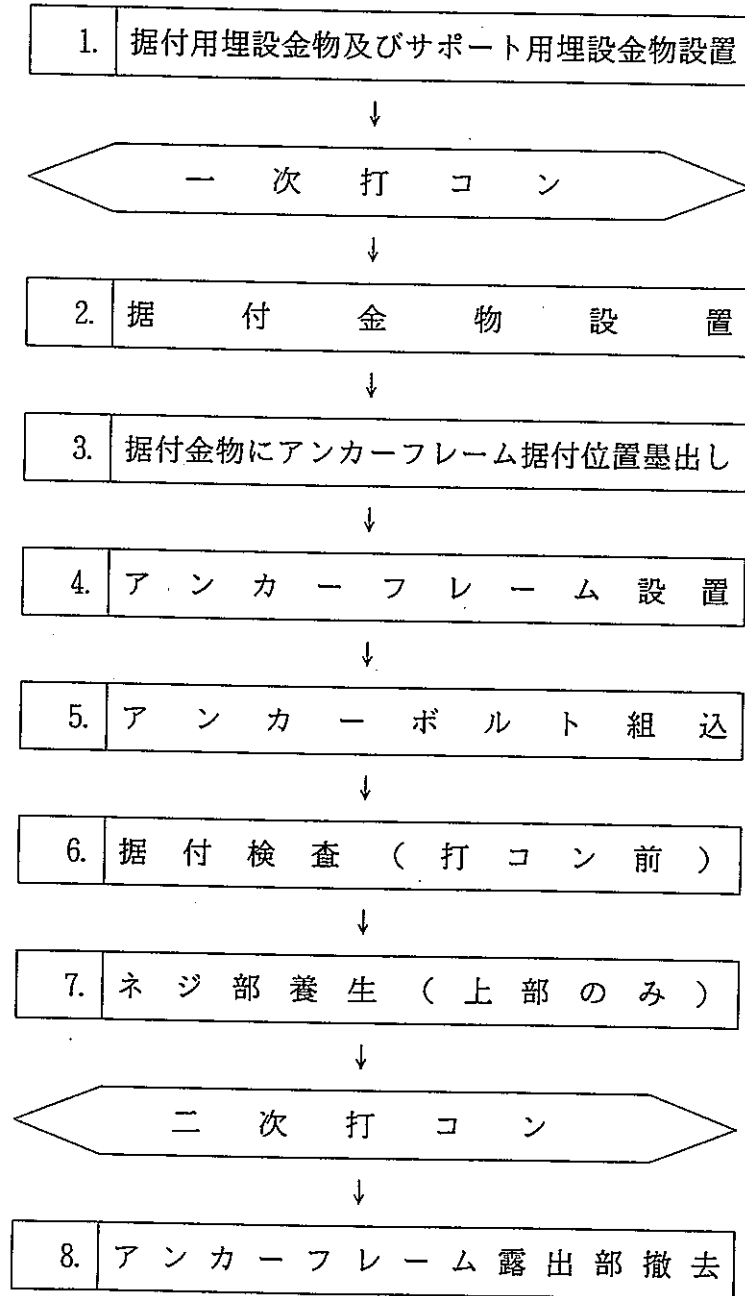 1. 据付用埋設金物及びサポート用埋設金物設置
↓
一次打コン
↓
2. 据付金物設置
↓
3. 据付金物にアンカーフレーム据付位置墨出し
↓
4. アンカーフレーム設置
↓
5. アンカーボルト組込
↓
6. 据付検査(打コン前)
↓
7. ネジ部養生(上部のみ)
↓
二次打コン
↓
8. アンカーフレーム露出部撤去